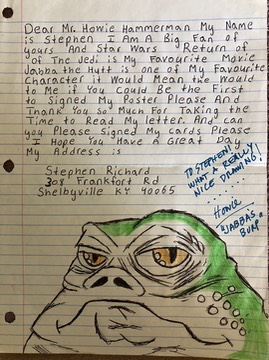 Dear Mr. Howie Hammerman My Name
is Stephen I Am A Big Fan of
yours And Star Wars Return of
of The Jedi is My Favourite Movie
Jabba the Hutt is one of My Favourite
Character i Would Mean the Would
to Me if You Could Be the First
to Signed My Poster Please And
Thank You So Much For Taking the
Time to Read My letter. And can
you Please Signed My cards Please
I Hope You Have A Great Day
My Address is
Stephen Richard
308 Frankfort Rd
Shelbyville KY 40065
TO STEPHEN!
WHAT A REALLY
NICE DRAWING!
Howie
"JABBAS
BURP"